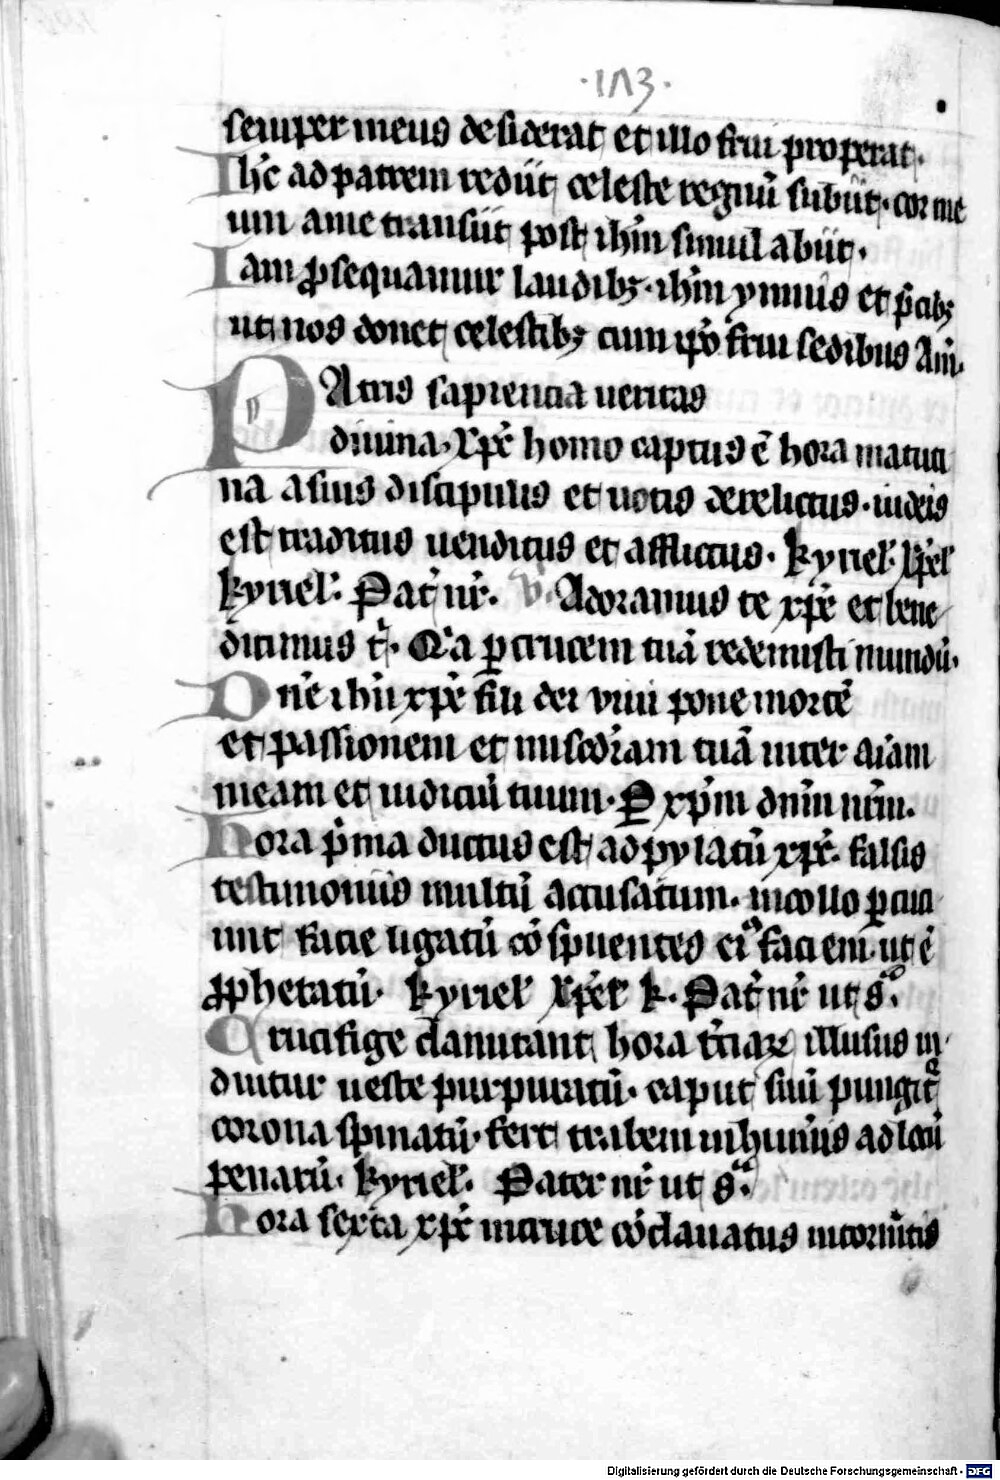 ·1Λ3·
semper meus desiderat et illo frui properat.
Ihc ad patrem rediit celeste regnū subiit. cor me
um a me transiit post ihm̄ simul abiit.
Iam ꝓsequamur laudibꝫ. ihm̄ ymnis et p̄cibꝫ
ut nos donet celestibꝫ cum ip̄o frui sedibus Am̄.
PAtris sapiencia ueritas
diuina. xp̄c homo captus ē hora matuti
na a suis discipulis et notis derelictus. iudeis
est traditus uenditus et afflictus. kyriel̄. xp̄el̄
kyriel̄. Pat̄ nr̄. v. Adoramus te xp̄e et bene
dicimus t̄. Qa ꝑ crucem tuā redemisti mundū.
Dn̄e ihū xp̄e fili dei viui pone mortē
et passionem et misc̄diam tuā inter aīam
meam et iudiciū tuum. P xp̄m dnm̄ nrm̄.
Hora p̄ma ductus est ad pylatū xp̄c. falsis
testimoniis multū accusatum. in collo ꝑcuci
unt facie ligatū cō spuentes ei faciem ut ē
ꝓphetatū. kyriel̄ xp̄el̄ k. Pat̄ nr̄ ut sᵃ.
Crucifige clamitant hora t̄ciaꝝ illusus in
duitur ueste purpuratū. caput suū pungit᷑
corona spinatū. fert trabem in hum̄is ad locū
penarū. kyriel̄. Pater nr̄ ut sᵃ.
Hora sexta xp̄c in cruce cō clauatus in cornutis
Digitalisierung gefördert durch die Deutsche Forschungsgemeinschaft - DFG